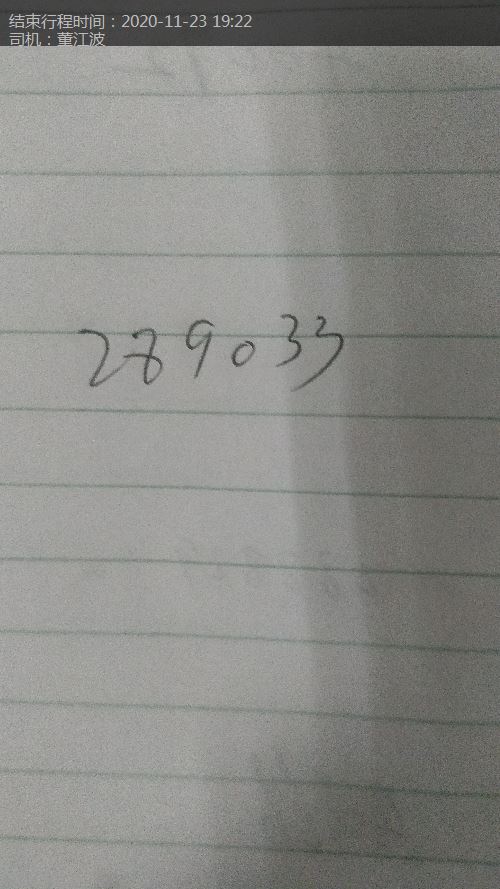 结束行程时间：2020-11-23 19:22
司机：董江波
289033